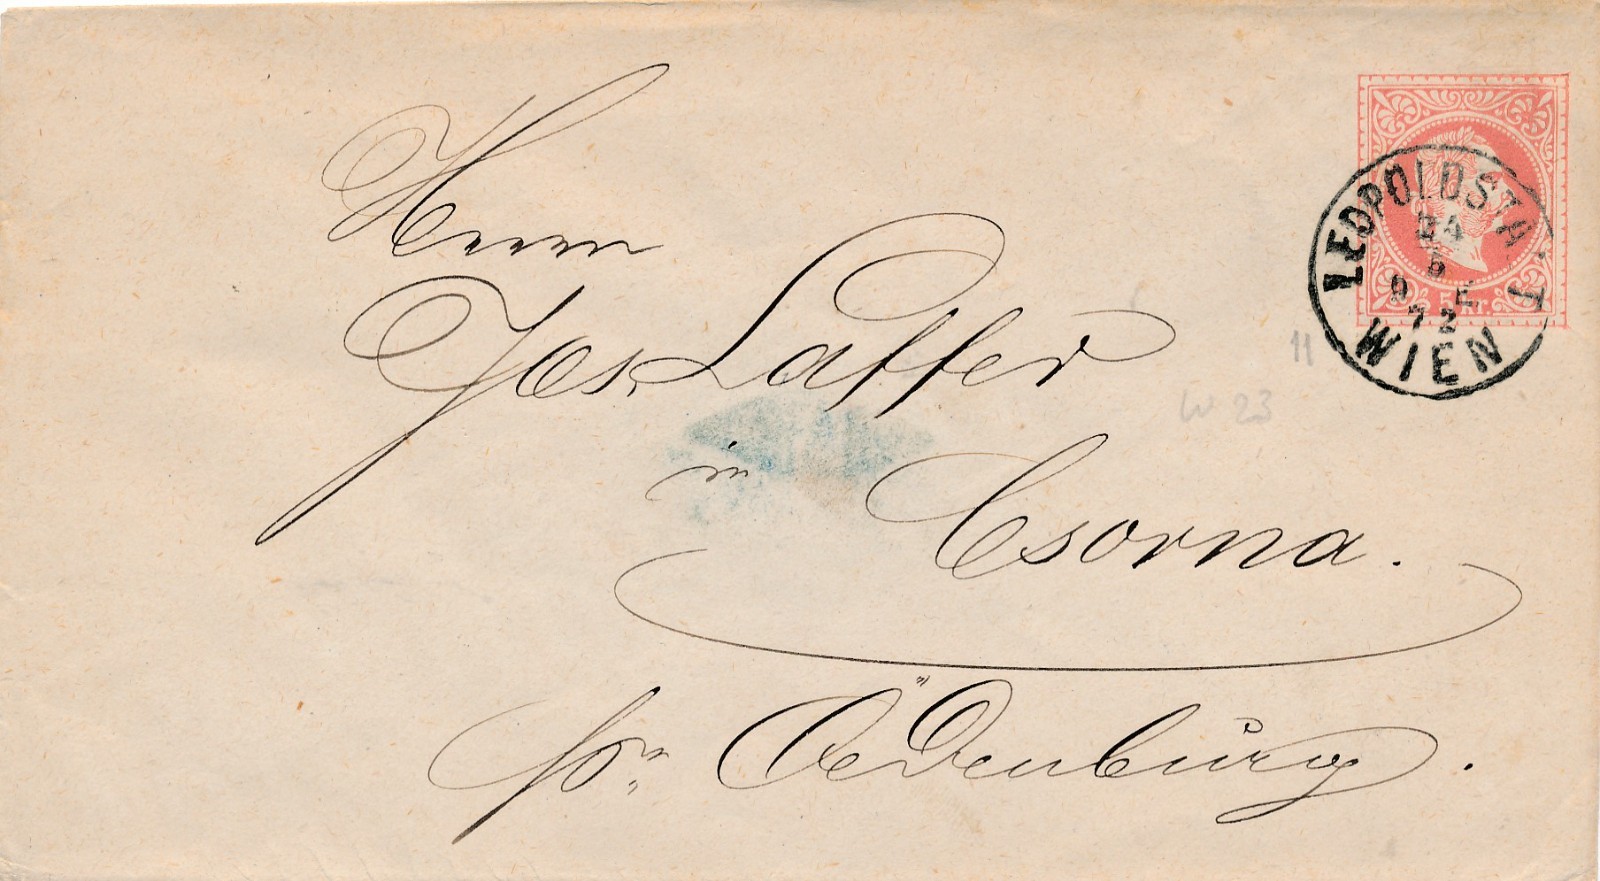 Herrn
Jos. Laffer
in Csorna.
pr. Oedenburg.
LEOPOLDSTADT
24
5
9 E
72
WIEN
5 Kr.
11
W 23